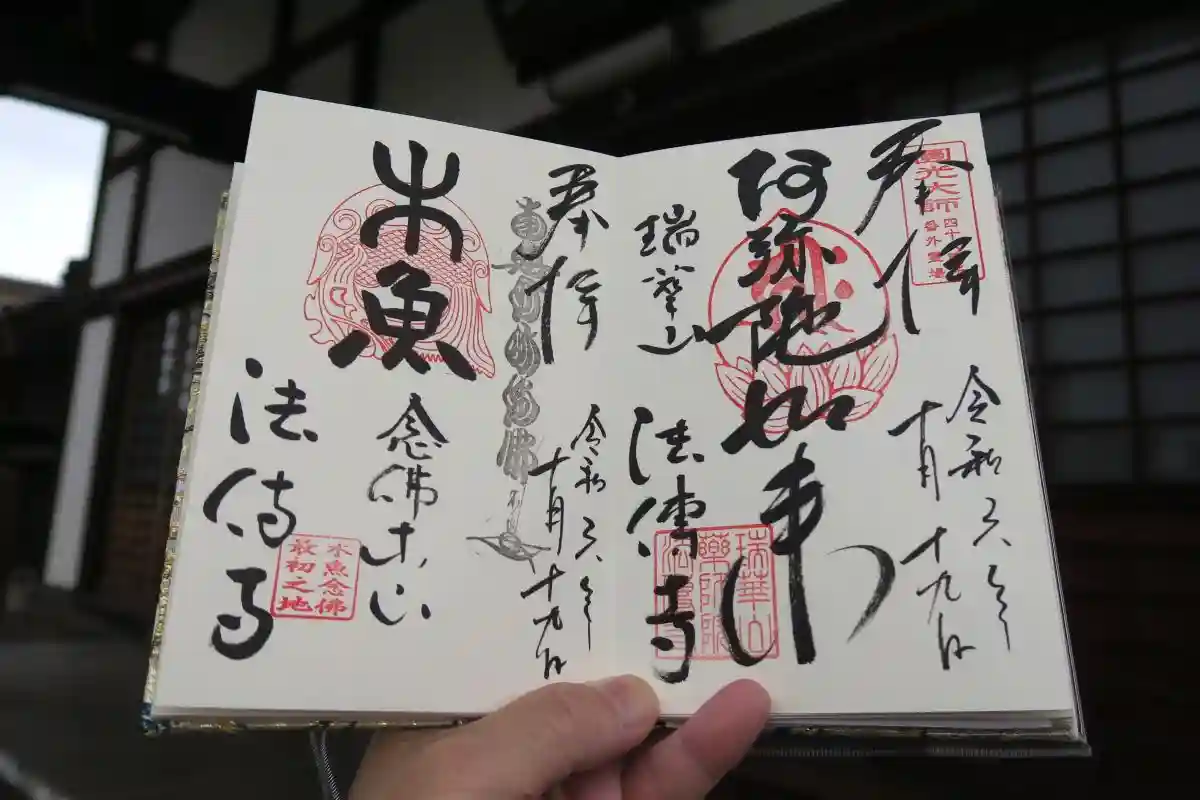 奉拝
圓光大師
四十八
番外霊場
令和六年
十月十九日
阿弥陀如来
瑞華山
法傳寺
瑞華山
薬師院
奉拝
令和六年
十月十九日
木魚
念佛本山
法傳寺
木魚念佛
最初之地